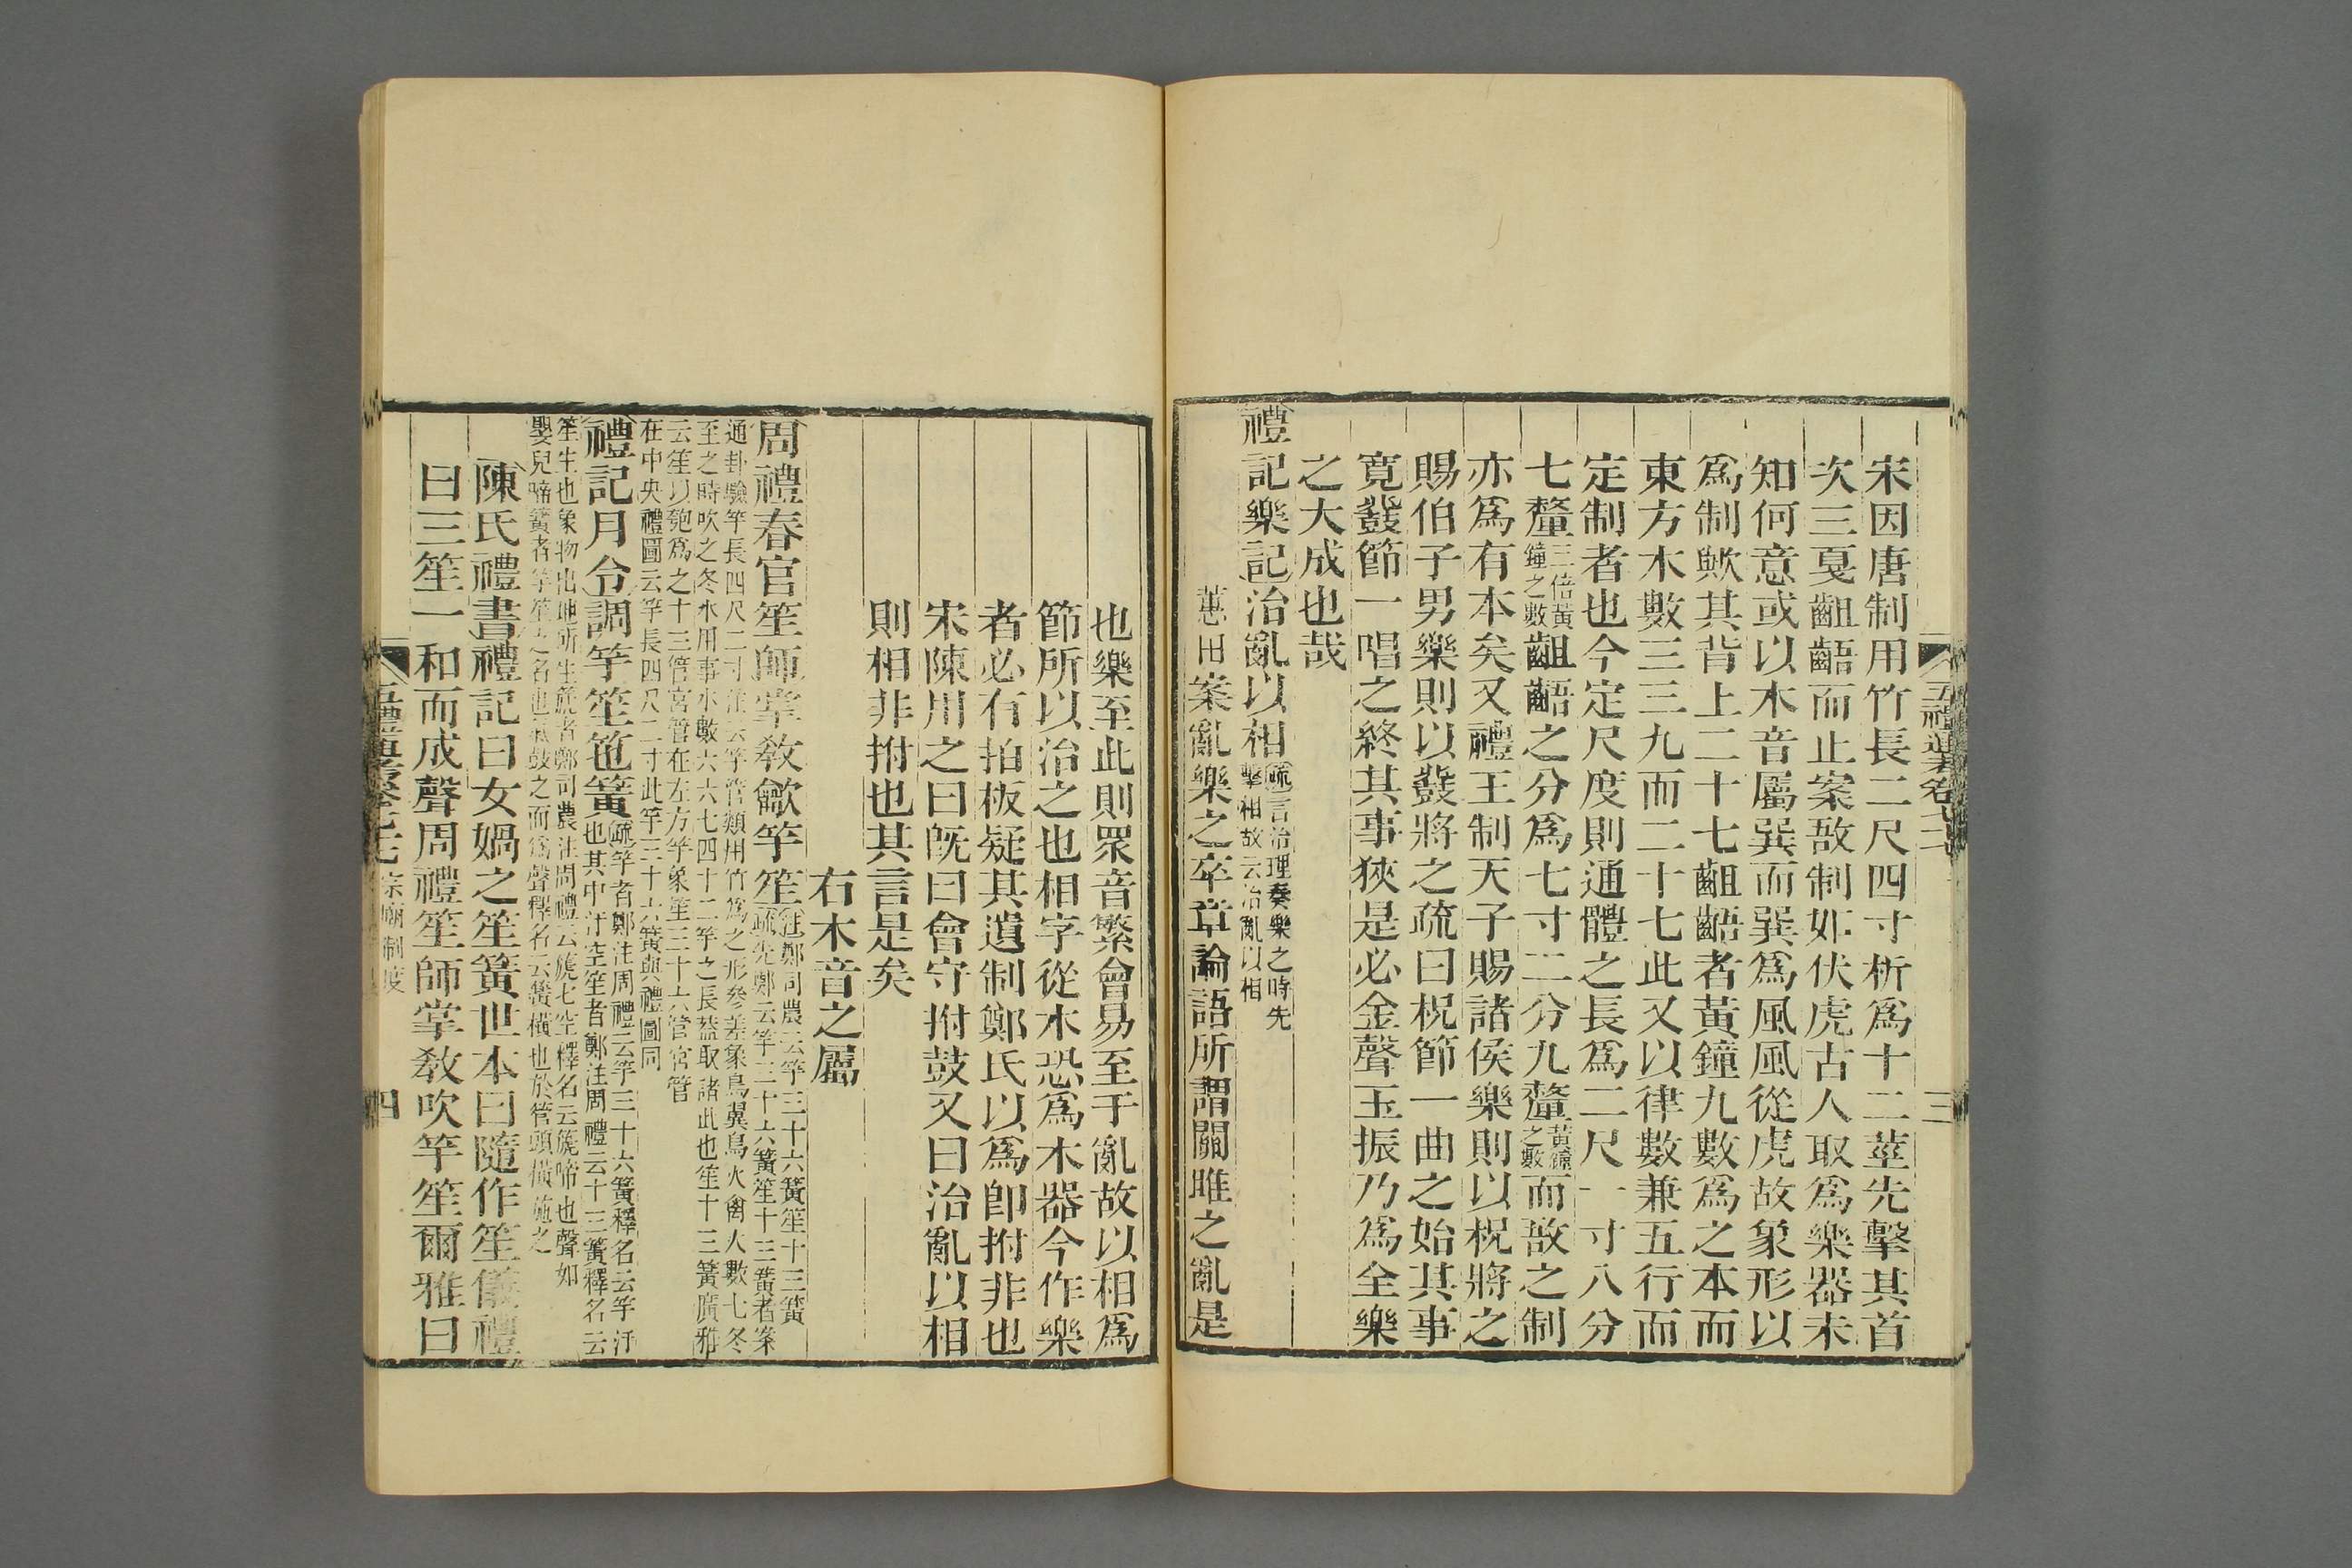 宋因唐制用竹長二尺四寸析爲十二莖先擊其首
次三戛齟齬而止案敔制如伏虎古人取爲樂器未
知何意或以木音屬巽而巽爲風風從虎故象形以
爲制歟其背上二十七齟齬者黃鐘九數爲之本而
東方木數三三九而二十七此又以律數兼五行而
定制者也今定尺度則通體之長爲二尺一寸八分
七釐三倍黃鐘之數齟齬之分爲七寸二分九釐黃鐘之數而敔之制
亦爲有本矣又禮王制天子賜諸侯樂則以柷將之
賜伯子男樂則以鼗將之疏曰柷節一曲之始其事
寬鼗節一唱之終其事狹是必金聲玉振乃爲全樂
之大成也哉
禮記樂記治亂以相疏言治理奏樂之時先擊相故云治亂以相
蕙田案亂樂之卒章論語所謂關雎之亂是
三
也樂至此則眾音繁會易至于亂故以相爲
節所以治之也相字從木恐爲木器今作樂
者必有拍板疑其遺制鄭氏以爲卽拊非也
宋陳用之曰旣曰會守拊鼓又曰治亂以相
則相非拊也其言是矣
右木音之屬
周禮春官笙師掌敎龡竽笙注鄭司農云竽三十六簧笙十三簧疏先鄭云竽三十六簧笙十三簧者案
通卦驗竽長四尺二寸注云竽管類用竹爲之形參差象鳥翼鳥火禽火數七冬
至之時吹之冬水用事水數六六七四十二竽之長蓋取諸此也笙十三簧廣雅
云笙以匏爲之十三管宮管在左方竽象笙三十六管宮管
在中央禮圖云竽長四尺二寸此竽三十六簧與禮圖同
禮記月令調竽笙竾簧疏竽者鄭注周禮云竽三十六簧釋名云竽汙也其中汙空笙者鄭注周禮云十三簧釋名云
笙生也象物出地所生箎者鄭司農注周禮云箎七空釋名云箎啼也聲如
嬰兒啼簧者竽笙之名也氣鼓之而爲聲釋名云簧橫也於管頭橫施之
陳氏禮書禮記曰女媧之笙簧世本曰隨作笙儀禮
曰三笙一和而成聲周禮笙師掌敎吹竽笙爾雅曰
宗廟制度
四